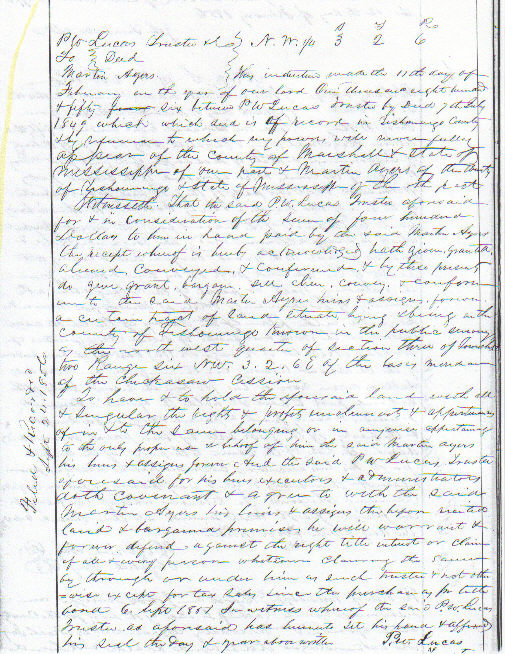 S T R
P W Lucas Trustee &c } N. W. 1/4 3 2 6
To } Deed
Martin Ayers } This indenture made the 11th day of
February in the year of our lord One thousand eight hundred
& fifty four six between P W Lucas Trustee by Deed 7th July
1849 which which deed is of record in Tishomingo County
& by reference to which my powers will more fully
appear of the County of Marshall & State of
Mississippi of one part & Martin Ayers of the County
of Tishomingo & State of Mississippi of the other part
Witnesseth That the said P W. Lucas Trustee aforesaid
for & in consideration of the sum of four hundred
Dollars to him in hand paid by the said Martin Ayers
the receipt whereof is hereby acknowledged hath given, granted
aliened, conveyed, & confirmed & by these present
do give, grant, bargain, sell, alien, convey, & confirm
unto the said Martin Ayers heirs & assigns, forever
a certain tract of land situate lying & being in the
County of Tishomingo known in the public survey
as the north west quarter of section three of Township
two Range six NW. 3. 2. 6 E of the basis meridian
of the Chickasaw Cession
To have & to hold the aforesaid land with all
& singular the rights & profits emoluments & appurtenances
of in & to the same belonging or in anywise appertaining
to the only proper use & behoof of him the said Martin Ayers
his heirs & assigns forever & I the said P W Lucas Trustee
aforesaid for his heirs executors & administrators
doth covenant & agree to with the said
Martin Ayers his heirs & assigns the before recited
land & bargained premises he will warrant &
forever defend against the right title interest or claim
of all & every person whatsoever claiming the same
by through or under him as such trustee & not other
=wise except for tax sales since the purchase pr title
bond 6. Sept 1851 In witness whereof the said P. W. Lucas
Trustee as aforesaid has hereunto set his hand & affixed
his seal the day & year above written P W Lucas
Filed & Recorded
Sept 24 1856